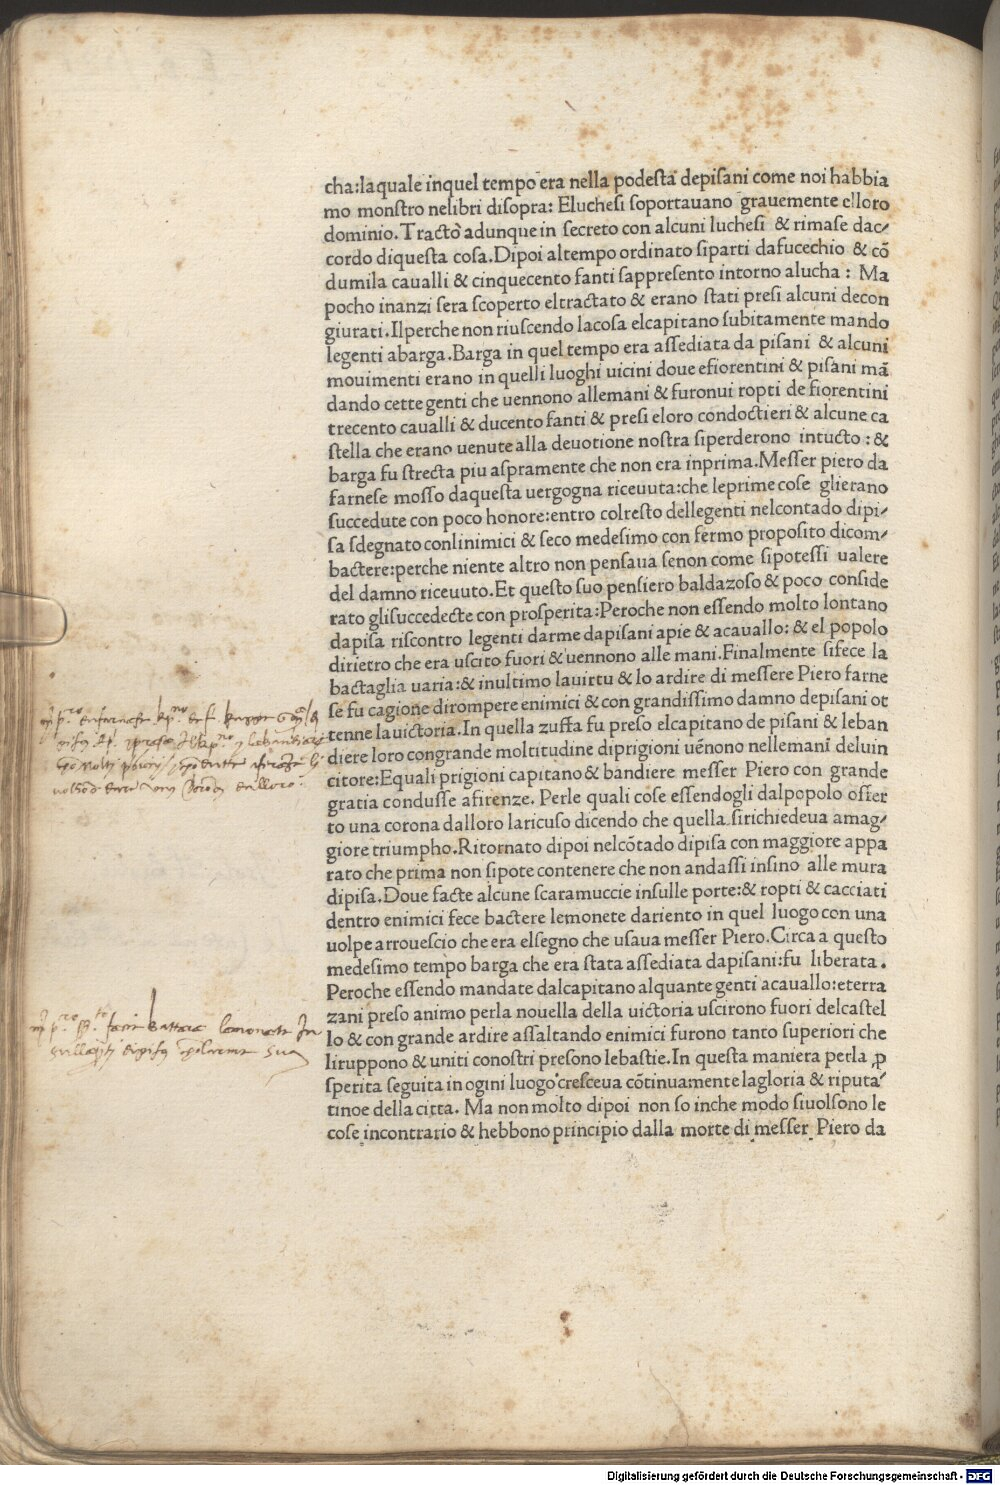 cha:laquale inquel tempo era nella podesta depisani come noi habbia
mo monstro nelibri disopra: Eluchesi soportauano grauemente elloro
dominio. Tracto adunque in secreto con alcuni luchesi & rimase dac-
cordo diquesta cosa. Dipoi altempo ordinato siparti dafucechio & cō
dumila caualli & cinquecento fanti sappresento intorno alucha: Ma
pocho inanzi sera scoperto eltractato & erano stati presi alcuni decon
giurati. Ilperche non riuscendo lacosa elcapitano subitamente mando
legenti abarga. Barga in quel tempo era assediata da pisani & alcuni
mouimenti erano in quelli luoghi uicini doue efiorentini & pisani mā
dando cette genti che uennono allemani & furonui ropti de fiorentini
trecento caualli & ducento fanti & presi eloro condoctieri & alcune ca
stella che erano uenute alla deuotione nostra siperderono intucto: &
barga fu strecta piu aspramente che non era inprima. Messer piero da
farnese mosso daquesta uergogna riceuuta: che leprime cose glierano
succedute con poco honore: entro colresto dellegenti nelcontado dipi-
sa sdegnato conlinimici & seco medesimo con fermo proposito dicom-
bactere: perche niente altro non pensaua senon come sipotessi ualere
del damno riceuuto. Et questo suo pensiero baldazoso & poco conside
rato glisuccedecte con prosperita: Peroche non essendo molto lontano
dapisa riscontro legenti darme dapisani apie & acauallo: & el popolo
dirietro che era uscito fuori & uennono alle mani. Finalmente sifece la
bactaglia uaria: & inultimo lauirtu & lo ardire di messere Piero farne
se fu cagione dirompere enimici & con grandissimo damno depisani ot
tenne lauictoria. In quella zuffa fu preso elcapitano de pisani & leban
diere loro congrande moltitudine diprigioni uēnono nellemani deluin
citore: Equali prigioni capitano & bandiere messer Piero con grande
gratia condusse afirenze. Perle quali cose essendogli dalpopolo offer
to una corona dalloro laricuso dicendo che quella sirichiedeua amag-
giore triumpho. Ritornato dipoi nelcōtado dipisa con maggiore appa
rato che prima non sipote contenere che non andassi insino alle mura
dipisa. Doue facte alcune scaramuccie insulle porte: & ropti & cacciati
dentro enimici fece bactere lemonete dariento in quel luogo con una
uolpe arrouescio che era elsegno che usaua messer Piero. Circa a questo
medesimo tempo barga che era stata assediata dapisani: fu liberata.
Peroche essendo mandate dalcapitano alquante genti acauallo: eterra
zani preso animo perla nouella della uictoria uscirono fuori delcastel
lo & con grande ardire assaltando enimici furono tanto superiori che
liruppono & uniti conostri presono lebastie. In questa maniera perla ꝓ
sperita seguita in ogini luogo cresceua cōtinuamente lagloria & riputa-
tinoe della citta. Ma non molto dipoi non so inche modo siuolsono le
cose incontrario & hebbono principio dalla morte di messer Piero da
Digitalisierung gefördert durch die Deutsche Forschungsgemeinschaft - DFG